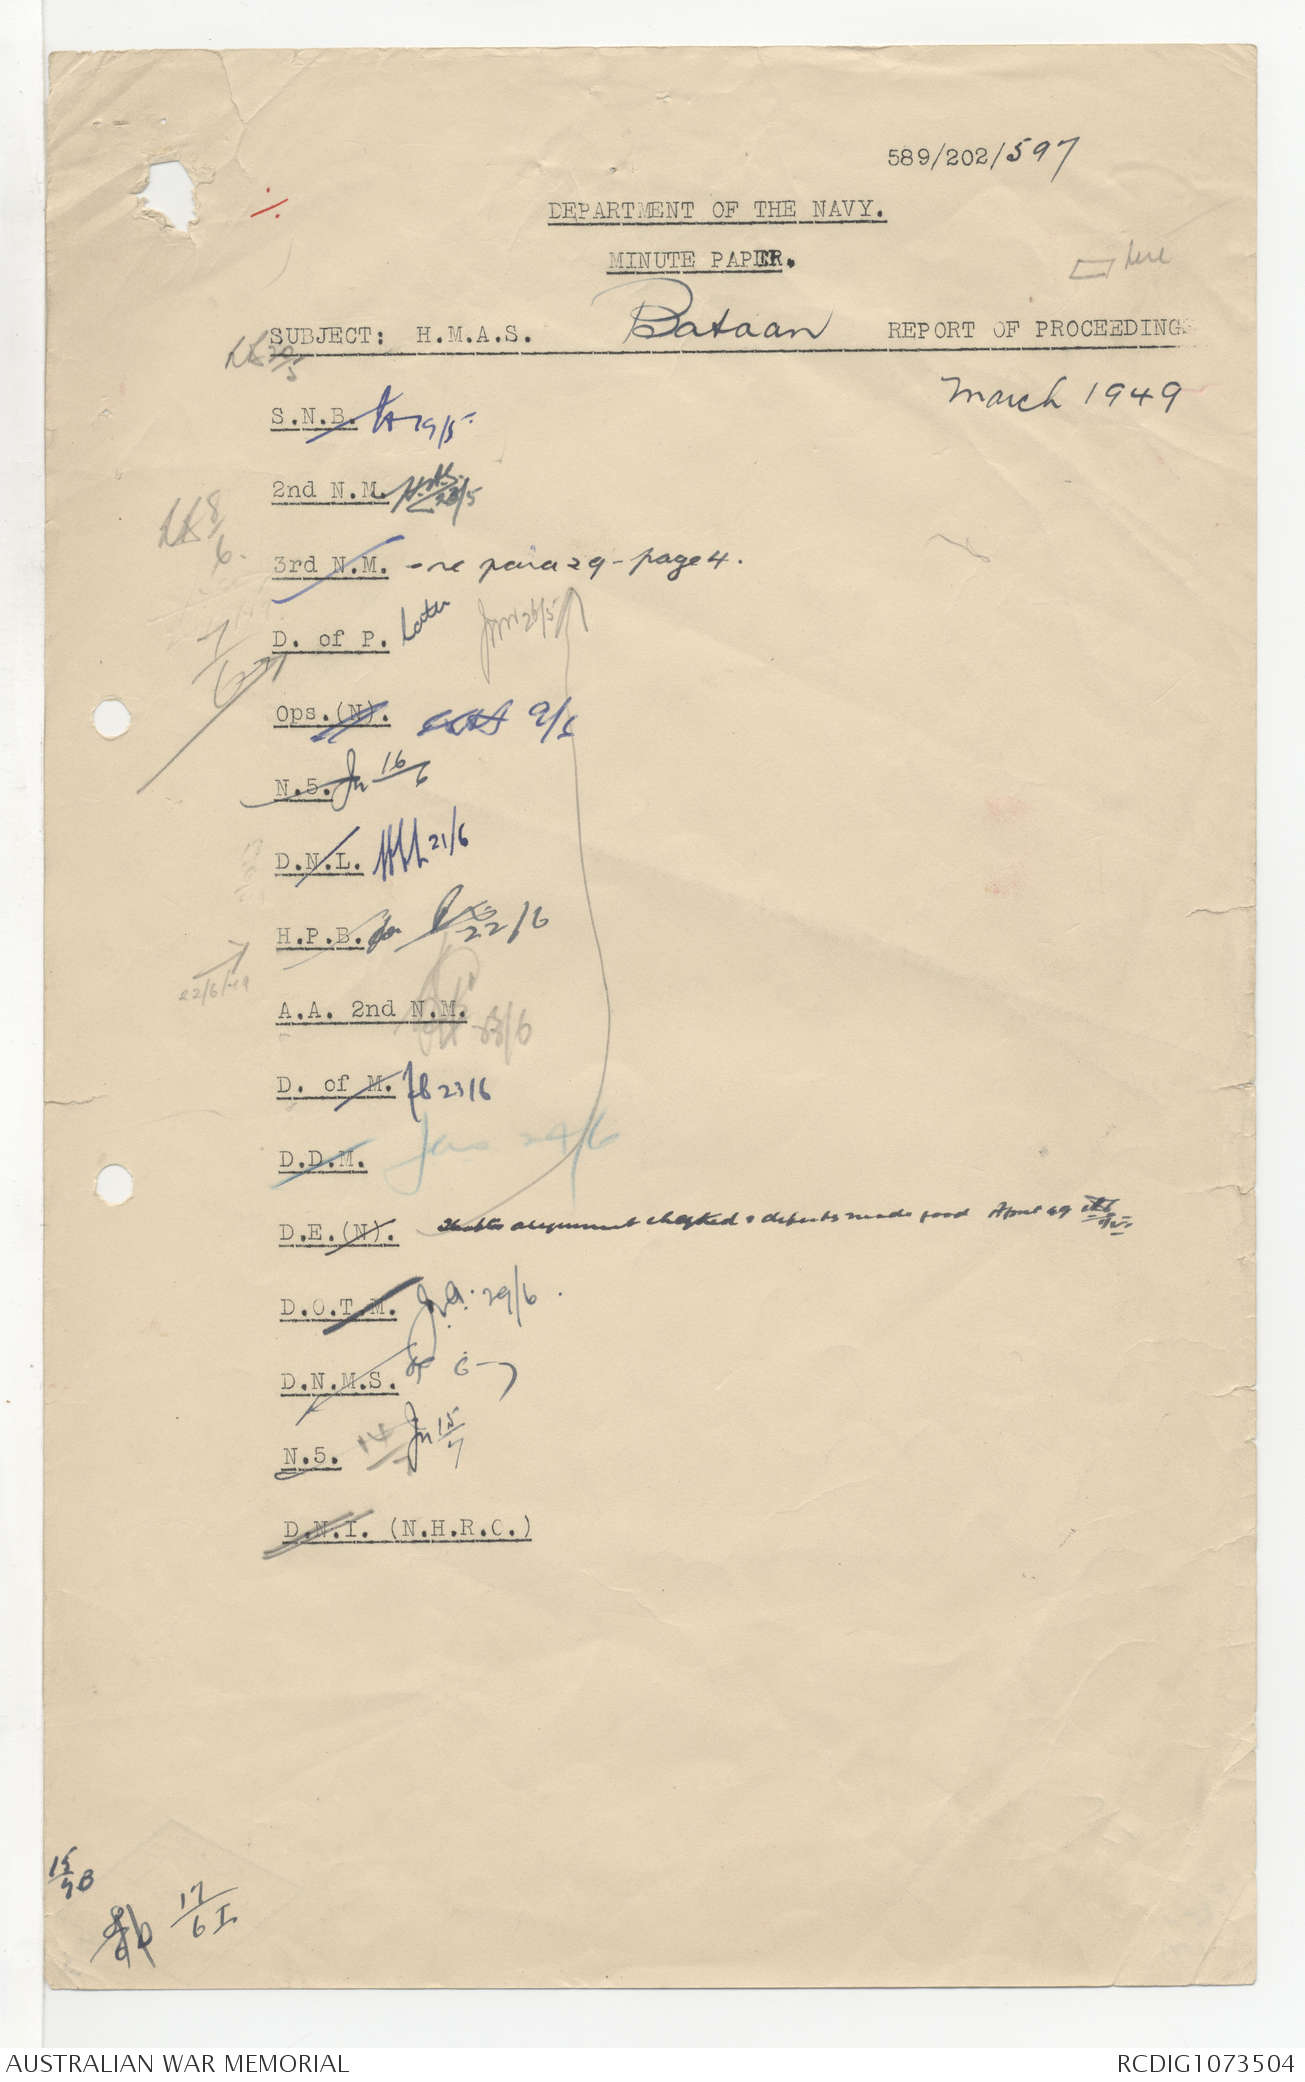 589/202/597
DEPARTMENT OF THE NAVY.
MINUTE PAPER.
here
SUBJECT: H.M.A.S. Bataan REPORT OF PROCEEDINGS
20/5
March 1949
S.N.B. 19/5
2nd N.M. 23/5
8/6
3rd N.M. - re para 29 - page 4.
7/6
D. of P. Later 26/5
Ops.(N). 9/6
N.5. 16/6
D.N.L. 21/6
H.P.B. 22/6
22/6/49
A.A. 2nd N.M. 23/6
D. of M. 23/6
D.D.M. 24/6
D.E.(N). alignment checked & defects made good April 49
D.O.T.M. 29/6.
D.N.M.S. 6-7
N.5. 14/7 15/7
D.N.I. (N.H.R.O.)
15/7 B
17/6 I
AUSTRALIAN WAR MEMORIAL
RCDIG1073504